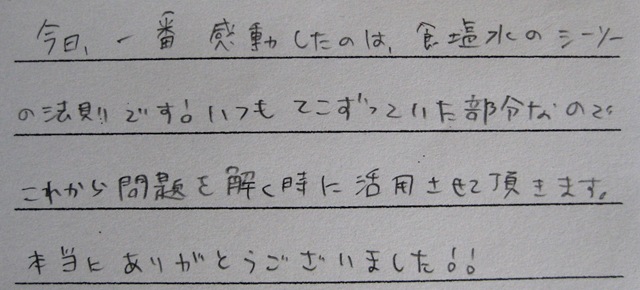 今日、一番感動したのは、食塩水のシーソー
の法則です!いつもてこずっていた部分なので
これから問題を解く時に活用させて頂きます。
本当にありがとうございました!!